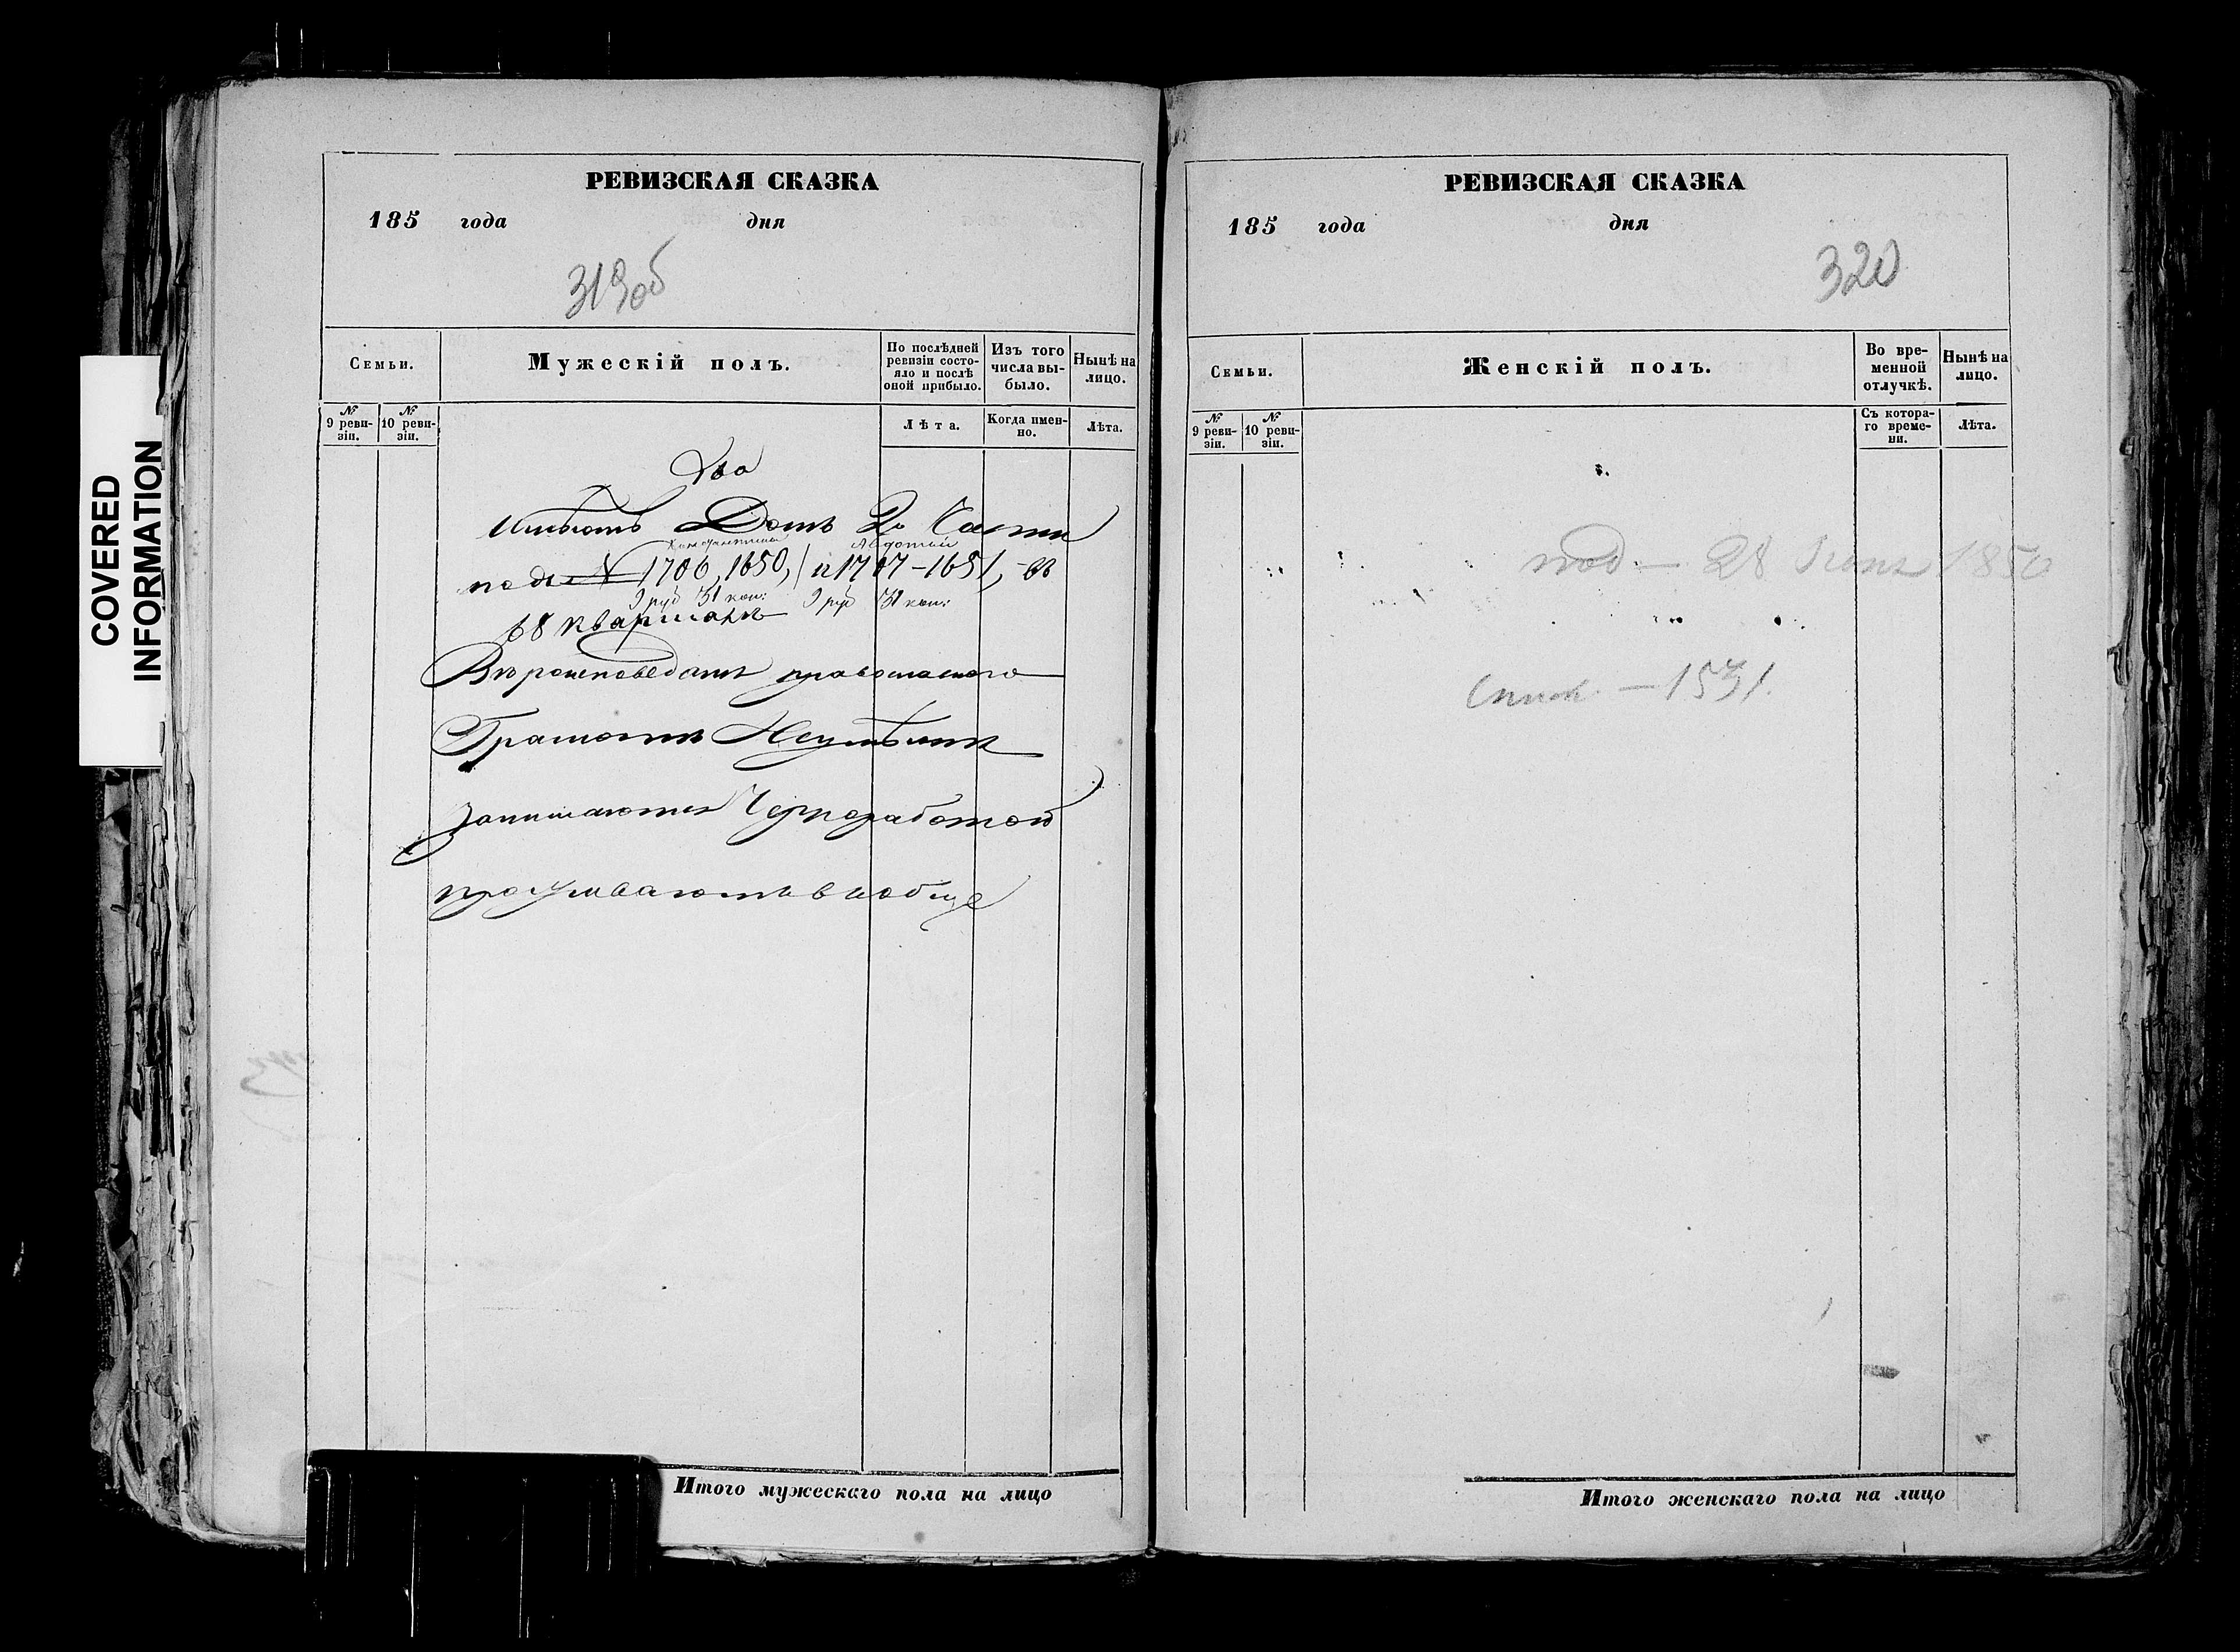 COVERED
INFORMATION
РЕВИЗСКАЯ СКАЗКА
185 года дня
319об
Семьи.
Мужескiй полъ.
По послѣдней
ревизiи состо-
яло и послѣ
оной прибыло.
Изъ того
числа вы-
было.
Нынѣ на
лицо.
№
9 реви-
зiи.
№
10 реви-
зiи.
Лѣта.
Когда имен-
но.
Лѣта.
Два
Имѣютъ Домъ 2й Части
подъ № 1706, 1650, и 1707-1651, въ
9 руб 31 коп: 9 руб 31 коп:
68 кварталѣ
Вѣроисповеданiя православнаго
Грамотѣ Неумѣютъ
Занимаются Черноработой
проживаютъ вообще
Итого мужескаго пола на лицо
РЕВИЗСКАЯ СКАЗКА
185 года дня
320
Семьи.
Женскiй полъ.
Во вре-
менной
отлучкѣ.
Нынѣ на
лицо.
№
9 реви-
зiи.
№
10 реви-
зiи.
Съ котора-
го време-
ни.
Лѣта.
под- 28 1850
- 1531.
Итого женскаго пола на лицо